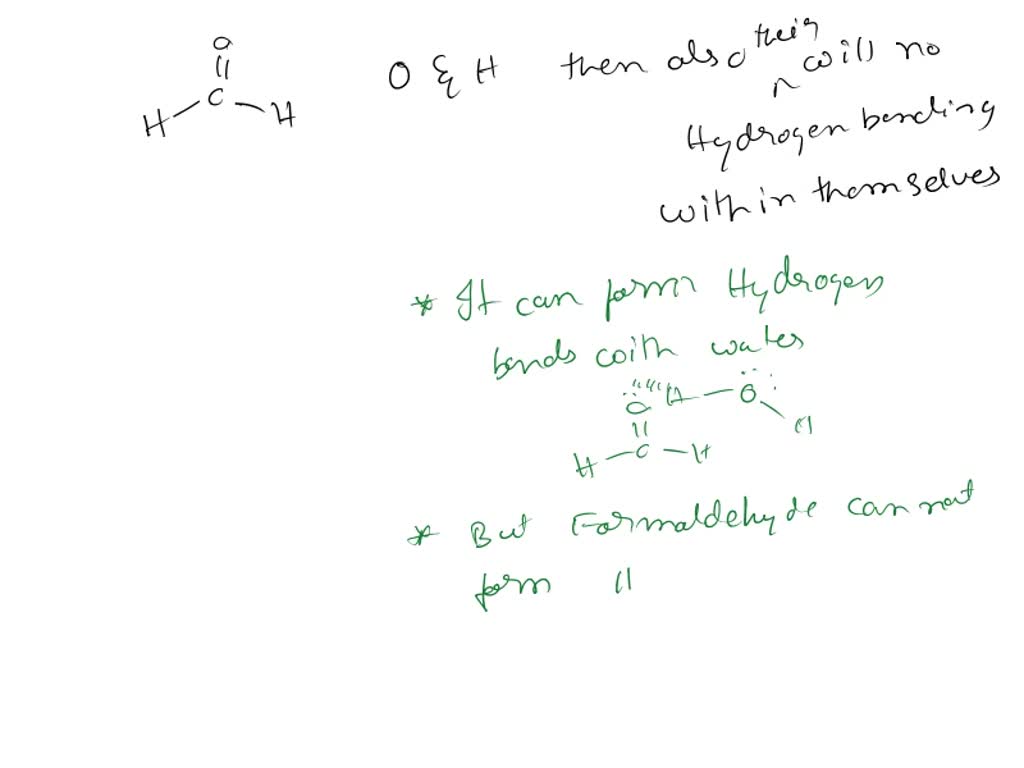 O
||
C
H H
O & H then also their
^ will no
Hydrogen bonding
within themselves
* It can form Hydrogen
bonds with water
O H O
|| H
H C H
* But Formaldehyde can not
form H